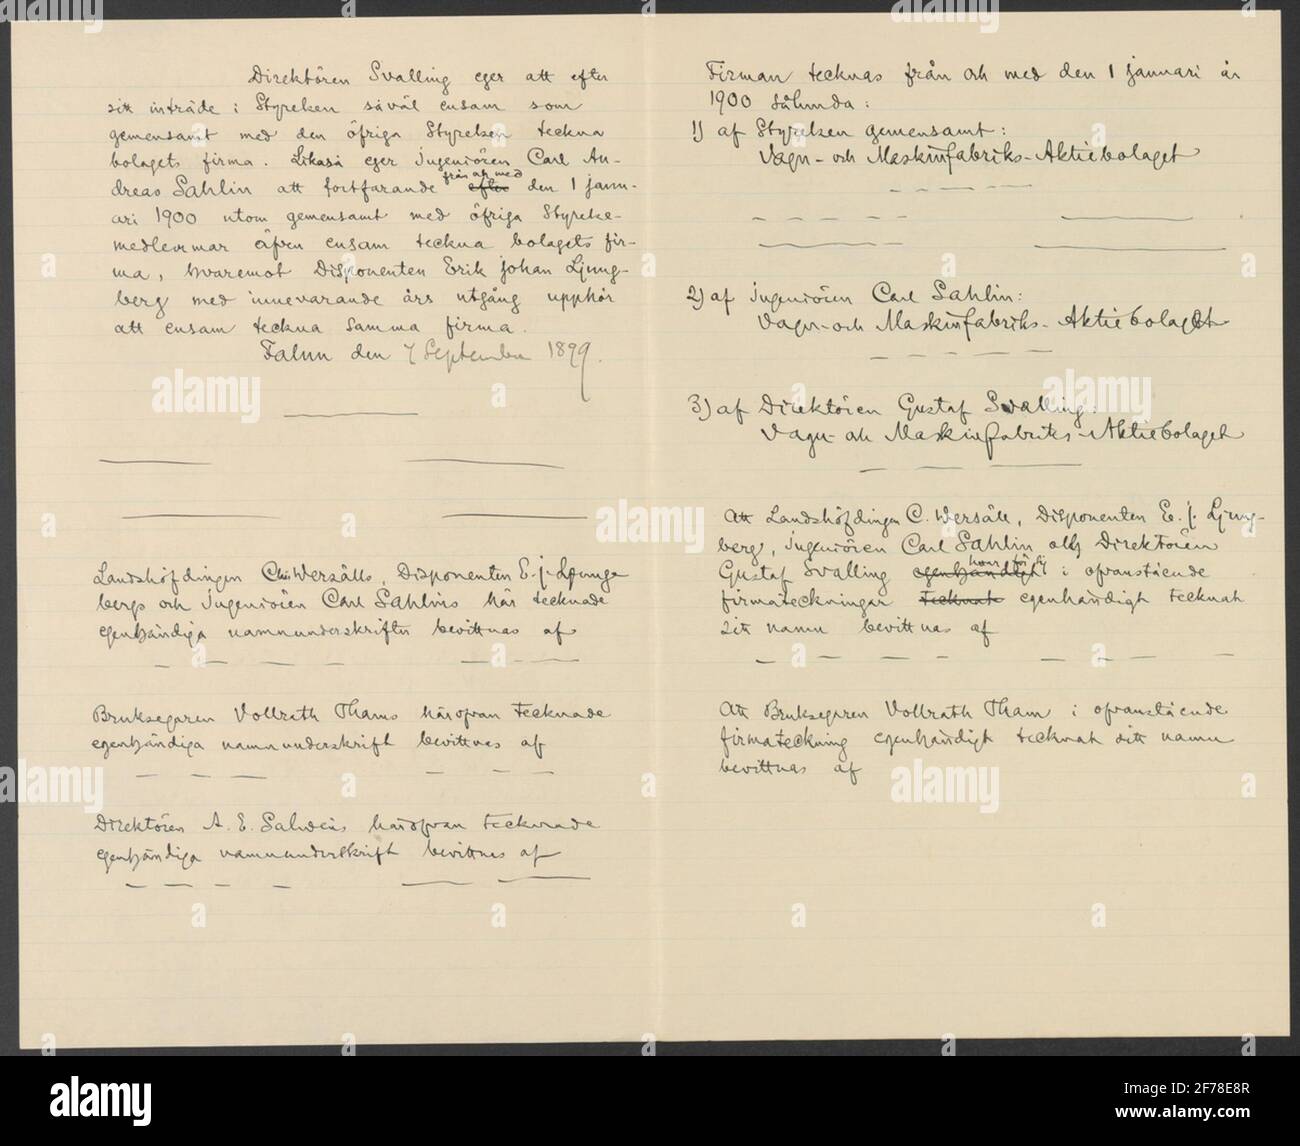 Direktören Svalling eger att efter
sitt inträde i Styrelsen såväl ensam som
gemensamt med den öfriga Styrelsen teckna
bolagets firma. Likaså eger ingeniören Carl An-
dreas Sahlin att fortfarande från och med efter den 1 janu-
ari 1900 utom gemensamt med öfriga Styrelse-
medlemmar äfven ensam teckna bolagets fir-
ma, hvaremot Disponenten Erik Johan Ljung-
berg med innevarande års utgång upphör
att ensam teckna samma firma.
Falun den 7 September 1899.
Landshöfdingen Wersälls, Disponenten E. J. Ljung-
bergs och Ingeniören Carl Sahlins här tecknade
egenhändiga namnunderskrifter bevittnas af
Bruksegaren Vollrath Thams härofvan tecknade
egenhändiga namnunderskrift bevittnas af
Direktören A. E. Salwéns härofvan tecknade
egenhändiga namnunderskrift bevittnas af
Firman tecknas från och med den 1 januari år
1900 sålunda:
1) af Styrelsen gemensamt:
Vagn- och Maskinfabriks-Aktiebolaget
2) af ingeniören Carl Sahlin:
Vagn- och Maskinfabriks-Aktiebolaget
3) af Direktören Gustaf Svalling:
Vagn- och Maskinfabriks-Aktiebolaget
Att Landshöfdingen C. Wersäll, Disponenten E. J. Ljung-
berg, ingeniören Carl Sahlin och Direktören
Gustaf Svalling egenhändigt i ofvanstående
firmateckningar tecknat egenhändigt tecknat
sitt namn bevittnas af
Att Bruksegaren Vollrath Tham i ofvanstående
firmateckning egenhändigt tecknat sitt namn
bevittnas af
alamy
Image ID: 2F78E8R
www.alamy.com